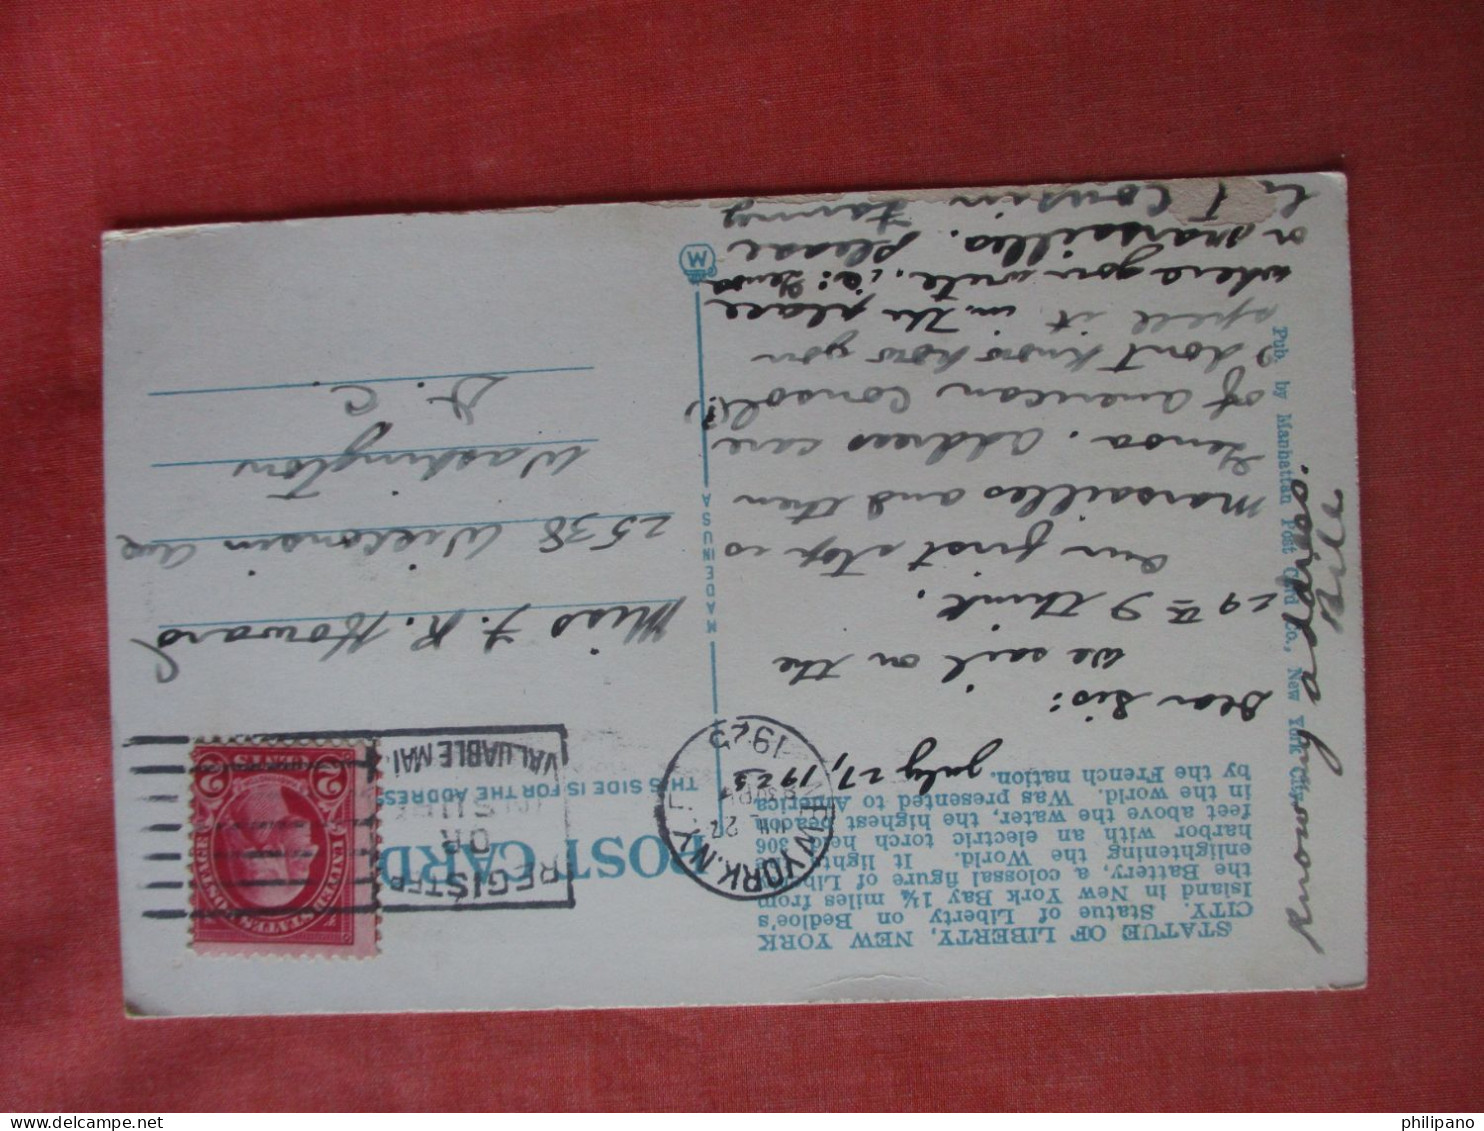 STATUE OF LIBERTY, NEW YORK
CITY. Statue of Liberty on Bedloe's
Island in New York Bay 1¾ miles from
the Battery, a colossal figure of Liberty
enlightening the World. It lights the
harbor with an electric torch held 306
feet above the water, the highest beacon
in the world. Was presented to America
by the French nation.
July 27, 1923
Dear Sis:
We sail on the
29th I think.
Our first stop is
Marseilles and then
Genoa. Address care
of American Consol(?)
I dont know how you
spell it in the place
where you write, ie: Genoa
or Marseilles. Please
let Cousin Fanny
know address.
Bill
Pub. by Manhattan Post Card Co., New York City.
MADE IN U S A
W
POST CARD
THIS SIDE IS FOR THE ADDRESS
NEW YORK, N.Y.
JUL 27
1923
REGISTER
OR
INSURE
VALUABLE MAIL
UNITED STATES POSTAGE
2 CENTS 2
Miss F. R. Howard
2538 Wisconsin Ave
Washington
D. C.
philipano